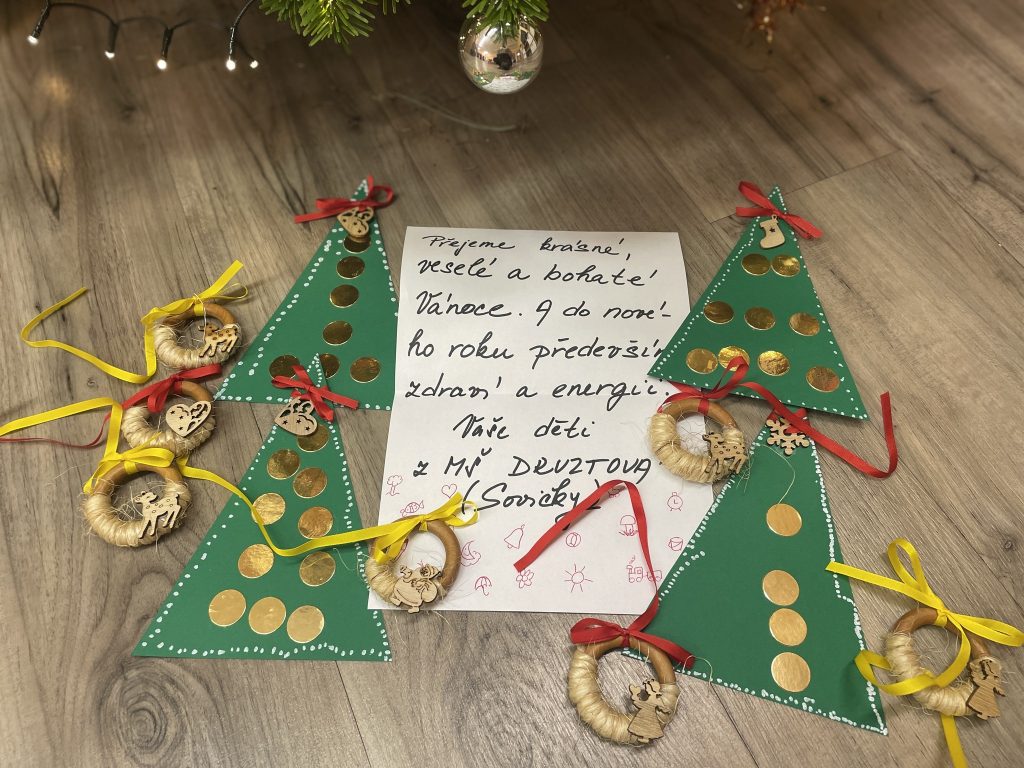 Přejeme krásné,
veselé a bohaté
Vánoce. A do nové-
ho roku především
zdraví a energii.
Vaše děti
z MŠ DRUZTOVA
(Sovičky)